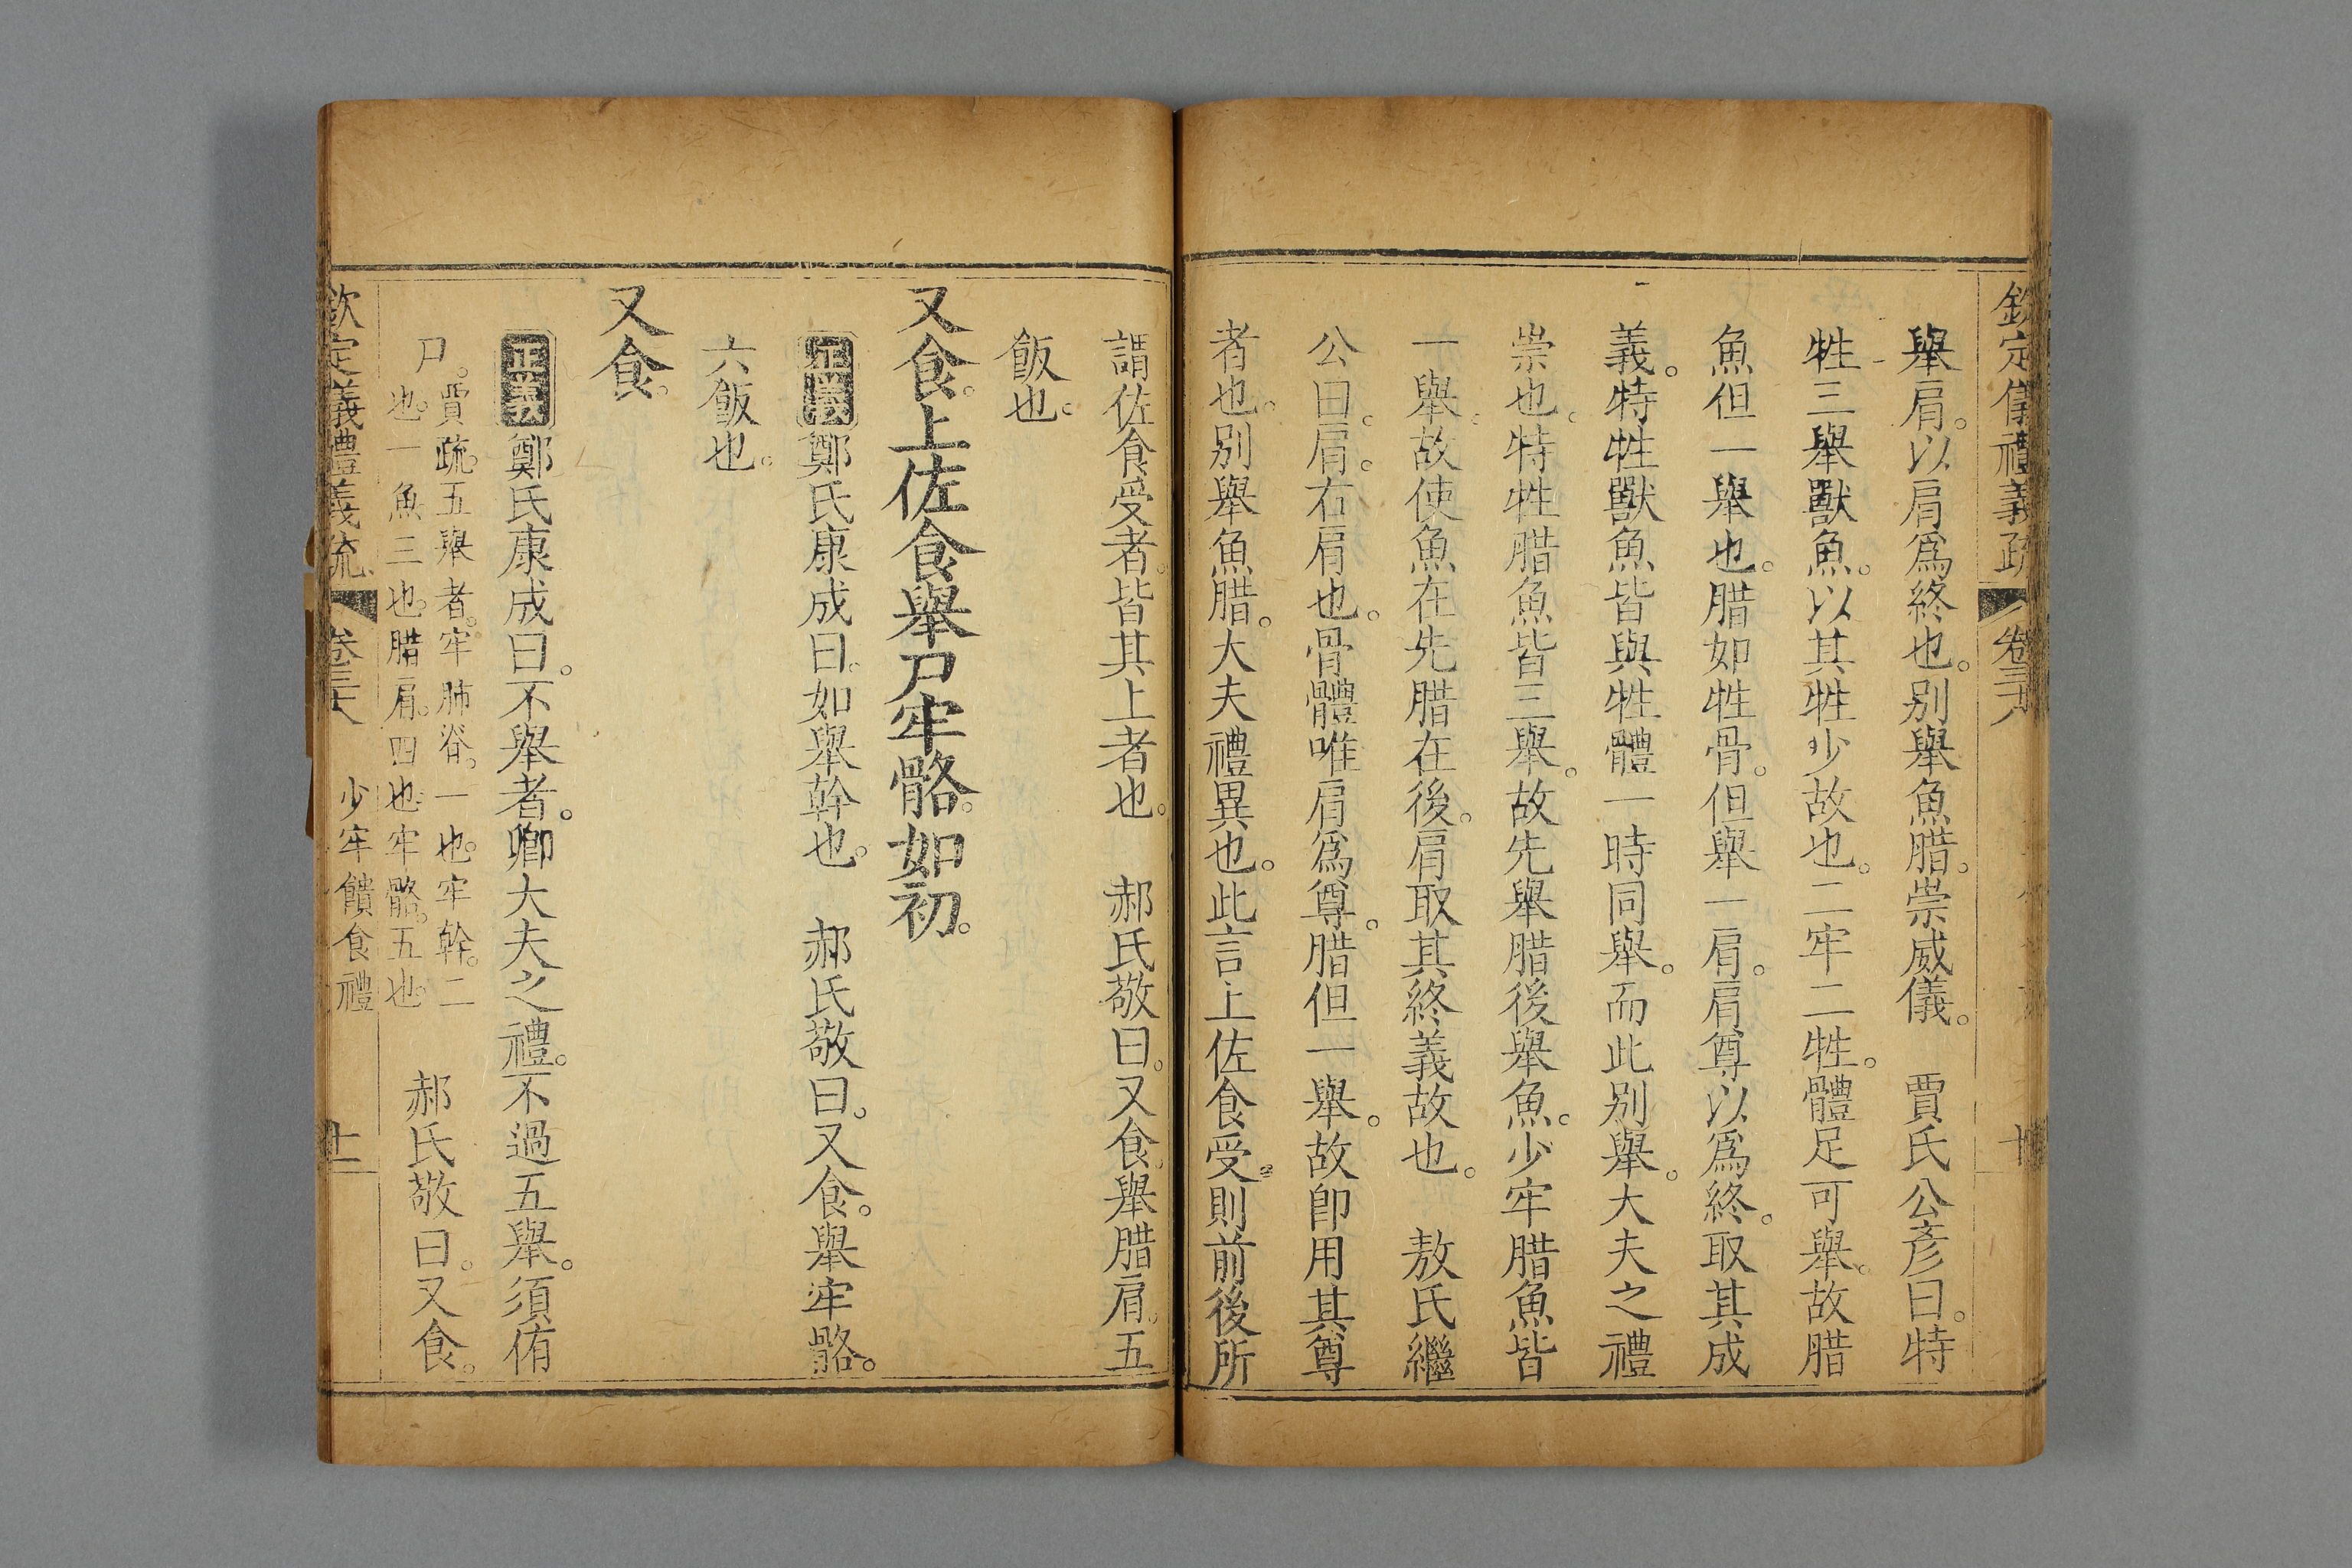 欽定儀禮義疏 卷三十八
舉肩。以肩爲終也。别舉魚腊。崇威儀。 賈氏公彥曰。特
牲三舉獸魚。以其牲少故也。二牢二牲。體足可舉。故腊
魚但一舉也。腊如牲骨。但舉一肩。肩尊以爲終。取其成
義。特牲獸魚皆與牲體一時同舉。而此别舉。大夫之禮
崇也。特牲腊魚皆三舉。故先舉腊後舉魚。少牢腊魚皆
一舉。故使魚在先腊在後。肩取其終義故也。 敖氏繼
公曰。肩。右肩也。骨體唯肩爲尊。腊但一舉。故卽用其尊
者也。别舉魚腊。大夫禮異也。此言上佐食受。則前後所
謂佐食受者。皆其上者也。 郝氏敬曰。又食。舉腊肩。五
飯也。
又食。上佐食舉尸牢骼。如初。
正義 鄭氏康成曰。如舉幹也。 郝氏敬曰。又食。舉牢骼。
六飯也。
又食。
正義 鄭氏康成曰。不舉者。卿大夫之禮。不過五舉。須侑
尸。賈疏。五舉者。牢肺脊。一也。牢幹。二
也。一魚三也。腊肩。四也。牢骼。五也。 郝氏敬曰。又食。
欽定儀禮義疏 卷三十八 少牢饋食禮 十一